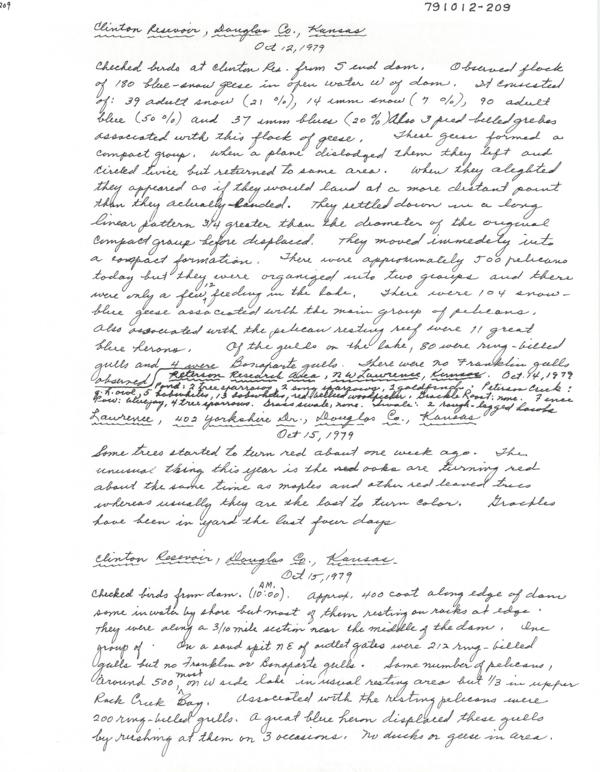 209
791012-209
Clinton Resevoir, Douglas Co., Kansas
Oct 12, 1979
Checked birds at Clinton Res. from S end dam. Observed flock
of 180 blue-snow geese in open water W of dam. It consisted
of: 39 adult snow (21 %), 14 imm snow (7 %), 90 adult
blue (50 %) and 37 imm blues (20 %) Also 3 pied billed grebes
associated with this flock of geese. These geese formed a
compact group. When a plane dislodged them they left and
circled twice but returned to same area. When they alighted
they appeared as if they would land at a more distant point
than they actually landed. They settled down in a long
linear pattern 3/4 greater than the diameter of the original
compact group before displaced. They moved immedety into
a compact formation. There were approximately 500 pelicans
today but they were organized into two groups and there
were only a few, 12 feeding in the lake. There were 104 snow-
blue geese associated with the main group of pelicans.
Also associated with the pelican resting reef were 11 great
blue herons. Of the gulls on the lake, 80 were ring-billed
gulls and 4 were Bonaparte gulls. There were no Franklin gulls
observed. Peterson Research Area, NW Lawrence, Kansas. Oct. 14, 1979
Pond: 2 tree sparrows, 2 song sparrows, 2 goldfinch. Peterson Creek:
g. h. owl, 5 bobwhites, 13 bobwhites, red bellied woodpecker. Grackle Roost: none. Fence
Row: bluejay, 4 tree sparrows. Grass swale, none. 2 rough-legged hawks
Lawrence, 402 Yorkshire Dr., Douglas Co., Kansas
Oct 15, 1979
Some trees started to turn red about one week ago. The
unusual thing this year is the red oaks are turning red
about the same time as maples and other red leaved trees
whereas usually they are the last to turn color. Grackles
have been in yard the last four days
Clinton Resevoir, Douglas Co., Kansas.
Oct 15, 1979
Checked birds from dam. (10:00 A.M.). Approx. 400 coot along edge of dam
some in water by shore but most of them resting on rocks at edge.
They were along a 3/10 mile section near the middle of the dam. One
group of. On a sand spit NE of outlet gates were 212 ring-billed
gulls but no Franklin or Bonaparte gulls. Same number of pelicans,
around 500, most on W side lake in usual resting area but 1/3 in upper
Rock Creek Bay. Associated with the resting pelicans were
200 ring-billed gulls. A great blue heron displaced these gulls
by rushing at them on 3 occasions. No ducks or geese in area.